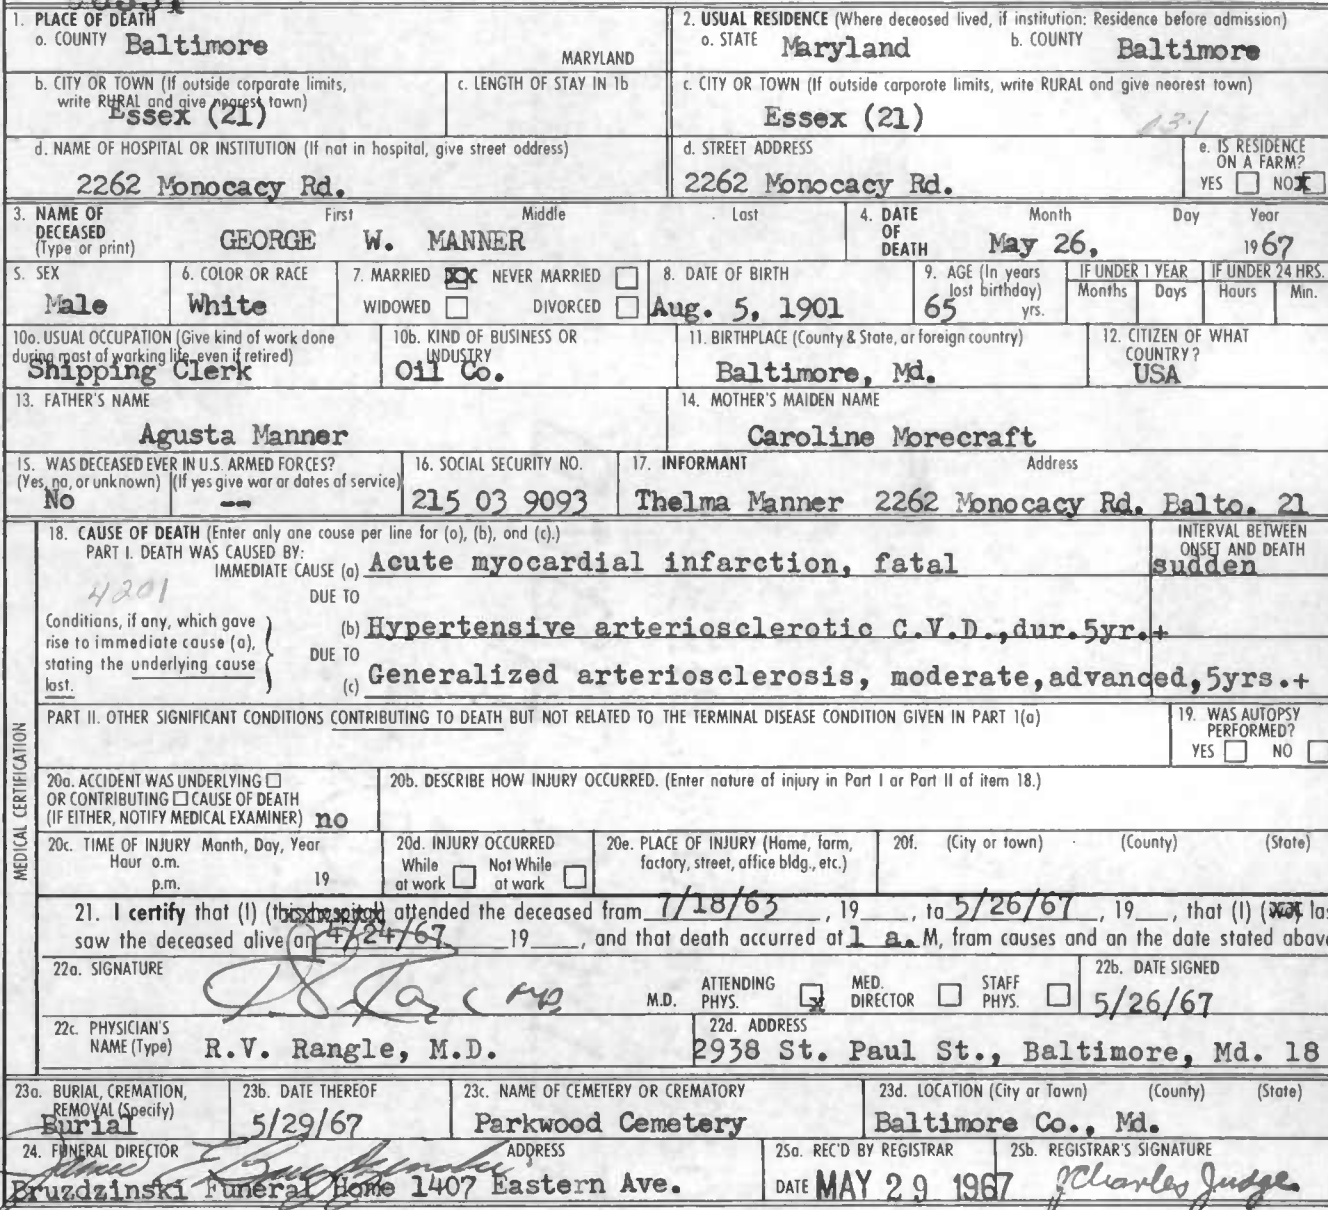 1. PLACE OF DEATH
a. COUNTY Baltimore MARYLAND
2. USUAL RESIDENCE (Where deceased lived, if institution: Residence before admission)
a. STATE Maryland b. COUNTY Baltimore
b. CITY OR TOWN (If outside corporate limits, write RURAL and give nearest town)
Essex (21)
c. LENGTH OF STAY IN 1b
c. CITY OR TOWN (If outside corporate limits, write RURAL and give nearest town)
Essex (21)
d. NAME OF HOSPITAL OR INSTITUTION (If not in hospital, give street address)
2262 Monocacy Rd.
d. STREET ADDRESS
2262 Monocacy Rd.
e. IS RESIDENCE ON A FARM?
YES NO X
3. NAME OF DECEASED (Type or print)
First Middle Last
GEORGE W. MANNER
4. DATE OF DEATH
Month Day Year
May 26, 1967
5. SEX
Male
6. COLOR OR RACE
White
7. MARRIED XX NEVER MARRIED
WIDOWED DIVORCED
8. DATE OF BIRTH
Aug. 5, 1901
9. AGE (In years last birthday)
65 yrs.
IF UNDER 1 YEAR
Months Days
IF UNDER 24 HRS.
Hours Min.
10a. USUAL OCCUPATION (Give kind of work done during most of working life, even if retired)
Shipping Clerk
10b. KIND OF BUSINESS OR INDUSTRY
Oil Co.
11. BIRTHPLACE (County & State, or foreign country)
Baltimore, Md.
12. CITIZEN OF WHAT COUNTRY?
USA
13. FATHER'S NAME
Agusta Manner
14. MOTHER'S MAIDEN NAME
Caroline Morecraft
15. WAS DECEASED EVER IN U.S. ARMED FORCES?
(Yes, no, or unknown) (If yes give war or dates of service)
No --
16. SOCIAL SECURITY NO.
215 03 9093
17. INFORMANT Address
Thelma Manner 2262 Monocacy Rd. Balto. 21
MEDICAL CERTIFICATION
18. CAUSE OF DEATH (Enter only one cause per line for (a), (b), and (c).)
PART I. DEATH WAS CAUSED BY:
IMMEDIATE CAUSE (a) Acute myocardial infarction, fatal
INTERVAL BETWEEN ONSET AND DEATH
sudden
4201
DUE TO
Conditions, if any, which gave rise to immediate cause (a), stating the underlying cause last.
(b) Hypertensive arteriosclerotic C.V.D.,dur.5yr.+
DUE TO
(c) Generalized arteriosclerosis, moderate,advanced,5yrs.+
PART II. OTHER SIGNIFICANT CONDITIONS CONTRIBUTING TO DEATH BUT NOT RELATED TO THE TERMINAL DISEASE CONDITION GIVEN IN PART 1(a)
19. WAS AUTOPSY PERFORMED?
YES NO
20a. ACCIDENT WAS UNDERLYING
OR CONTRIBUTING CAUSE OF DEATH
(IF EITHER, NOTIFY MEDICAL EXAMINER) no
20b. DESCRIBE HOW INJURY OCCURRED. (Enter nature of injury in Part I or Part II of item 18.)
20c. TIME OF INJURY Month, Day, Year
Hour a.m.
p.m. 19
20d. INJURY OCCURRED
While at work Not While at work
20e. PLACE OF INJURY (Home, farm, factory, street, office bldg., etc.)
20f. (City or town) (County) (State)
21. I certify that (I) (this hospital) attended the deceased from 7/18/63, 19 , to 5/26/67, 19 , that (I) las
saw the deceased alive on 4/24/67 19 , and that death occurred at 1 a. M, from causes and on the date stated above
22a. SIGNATURE
M.D. ATTENDING PHYS. X MED. DIRECTOR STAFF PHYS.
22b. DATE SIGNED
5/26/67
22c. PHYSICIAN'S NAME (Type)
R.V. Rangle, M.D.
22d. ADDRESS
2938 St. Paul St., Baltimore, Md. 18
23a. BURIAL, CREMATION, REMOVAL (Specify)
Burial
23b. DATE THEREOF
5/29/67
23c. NAME OF CEMETERY OR CREMATORY
Parkwood Cemetery
23d. LOCATION (City or Town) (County) (State)
Baltimore Co., Md.
24. FUNERAL DIRECTOR ADDRESS
Bruzdzinski Funeral Home 1407 Eastern Ave.
25a. REC'D BY REGISTRAR
DATE MAY 29 1967
25b. REGISTRAR'S SIGNATURE
J Charles Judge